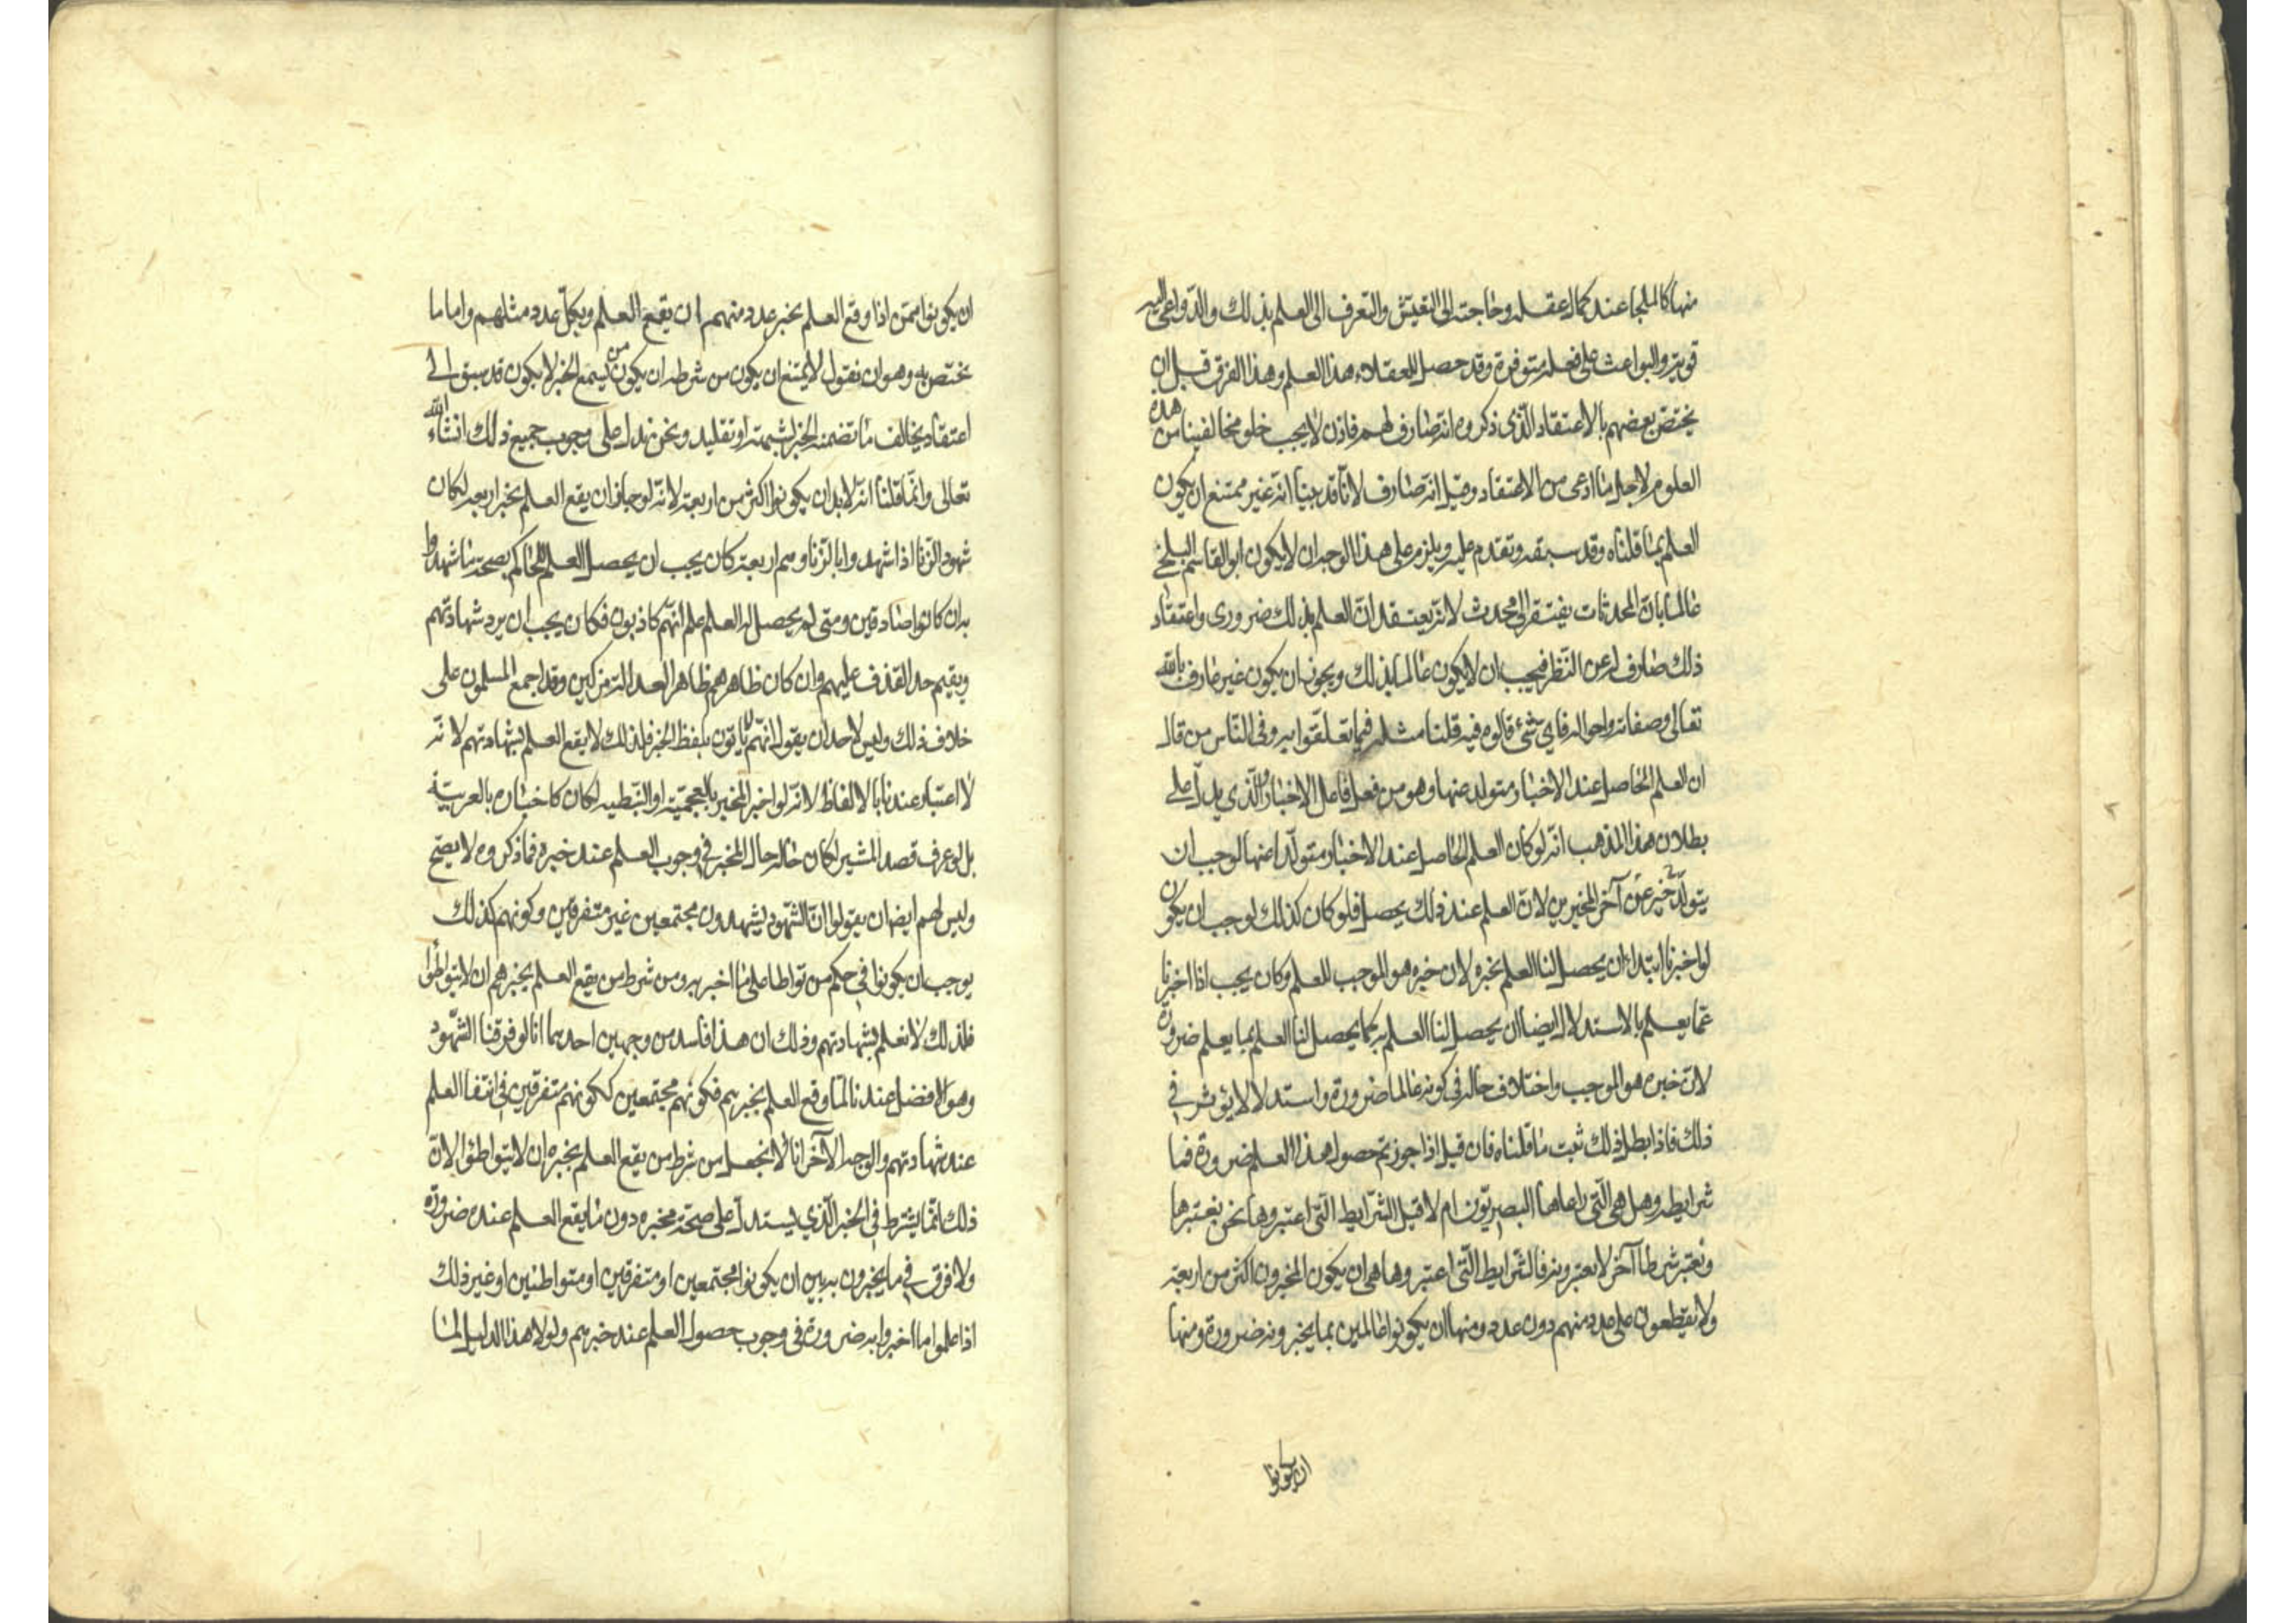 منها كالملجأ عند كمال عقله وحاجته الى التفتيش والتعرف الى العلم بذلك والدواعى اليه
قوية والبواعث على فعله متوفرة وقد حصل للعقلاء هذا العلم وهذا الفرق قبل ان
يختص بعضهم بالاعتقاد الذى ذكروه انه صارف لهم فاذن لا يجب خلو مخالفينا من هذه
العلوم لاجل ما ادعى من الاعتقاد وقيل انه صارف لانا قد بينا انه غير ممتنع ان يكون
العلم بما قلناه وقد سبقه وتقدم عليه ويلزم على هذا الوجه ان لا يكون ابو القاسم البلخي
عالما بان المحدثات يفتقر الى محدث لانه يعتقد ان العلم بذلك ضرورى واعتقاد
ذلك صارف له عن النظر فيجب ان لا يكون عالما بذلك ويجوز ان يكون غير عارف بالله
تعالى وصفاته واحواله فاي شئ قالوه فيه قلنا مثله فيما تعلقوا به وفى الناس من قال
ان العلم الحاصل عند الاخبار متولد عنها وهو من فعل فاعل الاخبار والذي يدل على
بطلان هذا المذهب انه لو كان العلم الحاصل عند الاخبار متولدا عنها لوجب ان
يتولد خبر عن آخر المخبرين لان العلم عند ذلك يحصل فلو كان كذلك لوجب ان يكون
لو اخبرنا ابتداء ان يحصل لنا العلم بخبره لان خبره هو الموجب للعلم وكان يجب اذا اخبرنا
عما يعلم بالاستدلال ايضا ان يحصل لنا العلم به كما يحصل لنا العلم بما يعلم ضرورة
لان خبره هو الموجب واختلاف حاله فى كونه عالما ضرورة واستدلالا لا يؤثر في
ذلك فاذا بطل ذلك ثبت ما قلناه فان قيل اذا جوزتم حصول هذا العلم ضرورة فما
شرايطه وهل هى التى راعاها البصريون ام لا قيل الشرايط التى اعتبروها نحن نعتبرها
ونعتبر شرطا آخر لا يعتبرونه فالشرايط التى اعتبروها هى ان يكون المخبرون اكثر من اربعة
ولا يقطعون على عدد منهم دون عدد ومنها ان يكونوا عالمين بما يخبرونه ضرورة ومنها
ان يكونوا
ان يكونوا ممن اذا وقع العلم بخبر عدد منهم ان يقع العلم وبكل عدد مثلهم واما ما
نختص به وهو ان نقول لا يمتنع ان يكون من شرطه ان يكون من يسمع الخبر لا يكون قد سبق الى
اعتقاد يخالف ما تضمنه الخبر لشبهة او تقليد ونحن ندل على وجوب جميع ذلك انشاء الله
تعالى وانما قلنا انه لا بد ان يكونوا اكثر من اربعة لانه لو جاز ان يقع العلم بخبر اربعة لكان
شهود الزنا اذا شهدوا بالزنا وهم اربعة كان يجب ان يحصل العلم للحاكم بصحة ما شهدوا
به ان كانوا صادقين ومتى لم يحصل له العلم علم انهم كاذبون فكان يجب ان يرد شهادتهم
ويقيم حد القذف عليهم وان كان ظاهرهم ظاهر العدالة مزكين وقد اجمع المسلمون على
خلاف ذلك وليس لاحد ان يقول انهم لا ياتون بلفظ الخبر فلذلك لا يقع العلم بشهادتهم لانه
لا اعتبار عندنا بالالفاظ لانه لو اخبر المخبر بالعجمية او النبطية لكان كاخباره بالعربية
بل لو عرف قصد المشير لكان حاله حال المخبر في وجوب العلم عند خبره فما ذكروه لا يصح
وليس لهم ايضا ان يقولوا ان الشهود يشهدون مجتمعين غير متفرقين وكونهم كذلك
يوجب ان يكونوا في حكم من تواطا على ما اخبر به ومن شرط من يقع العلم بخبرهم ان لا يتواطئوا
فلذلك لا نعلم بشهادتهم وذلك ان هذا فاسد من وجهين احدهما انا لو فرقنا الشهود
وهو الافضل عندنا لما وقع العلم بخبرهم فكونهم مجتمعين ككونهم متفرقين في انتفا العلم
عند شهادتهم والوجه الآخر انا لا نجعل من شرط من يقع العلم بخبره ان لا يتواطئوا لان
ذلك انما يشرط في الخبر الذي يستدل على صحة مخبره دون ما يقع العلم عنده ضرورة
ولا فرق في ما يخبرون به بين ان يكونوا مجتمعين او متفرقين او متواطئين او غير ذلك
اذا علموا ما اخبروا به ضرورة فى وجوب حصول العلم عند خبرهم ولولا هذا الدليل لما